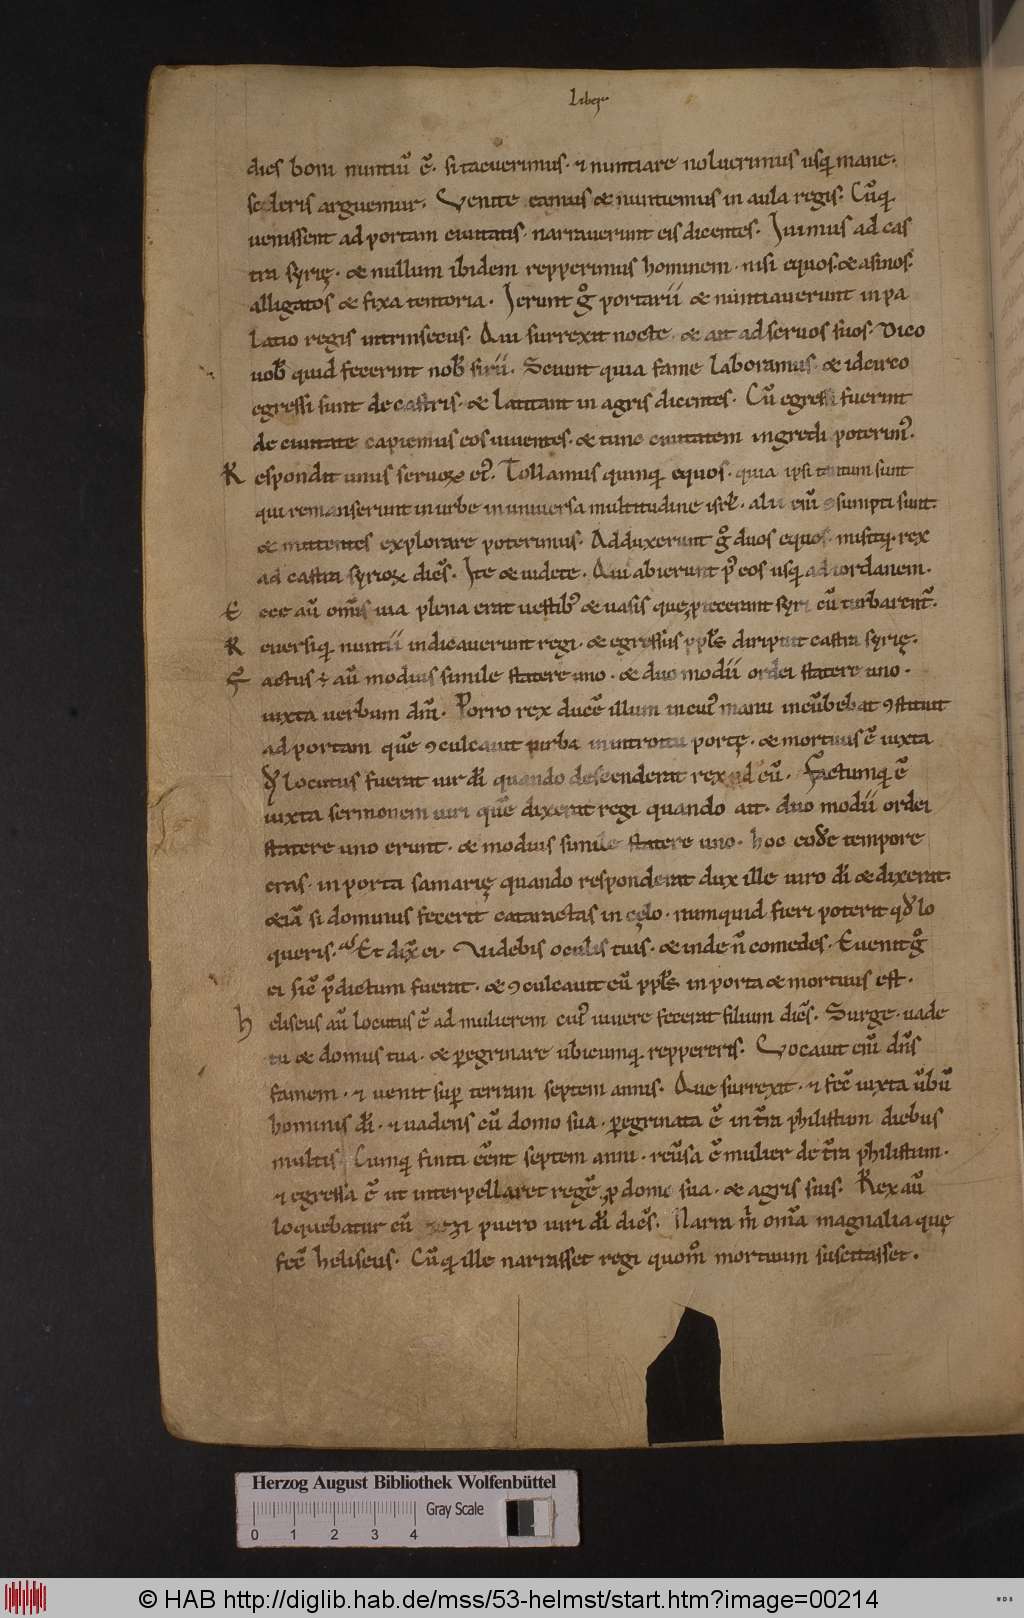 Liber
dies boni nuntiū ē. si tacuerimus. & nuntiare noluerimus usq; mane.
sceleris arguemur. Venite eamus & nuntiemus in aula regis. Cūq;
uenissent ad portam ciuitatis. narrauerunt eis dicentes. Iuimus ad cas
tra syrię. & nullum ibidem repperimus hominem. nisi equos. & asinos.
alligatos & fixa tentoria. Ierunt gͦ portarii & nuntiauerunt in pa
latio regis intrinsecus. Qui surrexit nocte. & ait ad seruos suos. Dico
uob̄ quid fecerint nob̄ sirii. Sciunt quia fame laboramus. & idcirco
egressi sunt de castris. & latitant in agris dicentes. Cū egressi fuerint
de ciuitate capiemus eos uiuentes. & tunc ciuitatem ingredi poterimꝰ.
Respondit unus seruoꝝ eiꝰ. Tollamus quinq; equos. quia ipsi tantum sunt
qui remanserunt in urbe in uniuersa multitudine isrl̄. alii eniū ꝯsumpti sunt.
& mittentes explorare poterimus. Adduxerunt gͦ duos equos. misitq; rex
ad castra syrioꝝ dicēs. Ite & uidete. Qui abierunt pꝰ eos usq; ad iordanem.
Ecce aū om̄is uia plena erat uestibꝰ & uasis quę ꝓiecerant syri cū turbarentꝰ.
Reuersiq; nuntii indicauerunt regi. & egressus ppl̄s diripuit castra syrię.
Factus ē aū modius simile statere uno. & duo modii ordei statere uno.
iuxta uerbum dn̄i. Porro rex ducē illum in cuiꝰ manu incūbebat ꝯstituit
ad portam quē ꝯculcauit turba in introitu portę. & mortuus ē iuxta
qd̄ locutus fuerat uir dī quando descenderat rex ad eū. Factumq; ē
iuxta sermonem uiri quē dixerat regi quando ait. duo modii ordei
statere uno erunt. & modius simile statere uno. hoc eodē tempore
cras. in porta samarię quando responderat dux ille uiro dī & dixerat.
&iā si dominus fecerit cataractas in cęlo. numquid fieri poterit qd̄ lo
queris. Et dix̄ ei. Videbis oculis tuis. & inde n̄ comedes. Euenit gͦ
ei sic̄ p̄dictum fuerat. & ꝯculcauit eū ppl̄s in porta & mortuus est.
Heliseus aū locutus ē ad mulierem cuiꝰ uiuere fecerat filium dicēs. Surge. uade
tu & domus tua. & ꝑegrinare ubicumq; reppereris. Vocauit eniū dn̄s
famem. & uenit suꝑ terram septem annis. Que surrexit. & fec̄ iuxta ūbū
hominis dī. & uadens cū domo sua. ꝑegrinata ē in t̄ra philistium diebus
multis. Cumq; finiti eēnt septem anni. reūsa ē mulier de t̄ra philistium.
& egressa ē ut interpellaret regē ꝓ domo sua. & agris suis. Rex aū
loquebatur cū giezi puero uiri dī dicēs. Narra m̄ om̄ia magnalia quę
fec̄ heliseus. Cūq; ille narrasset regi quom̄o mortuum suscitasset.
Herzog August Bibliothek Wolfenbüttel
Gray Scale
0 1 2 3 4
© HAB http://diglib.hab.de/mss/53-helmst/start.htm?image=00214